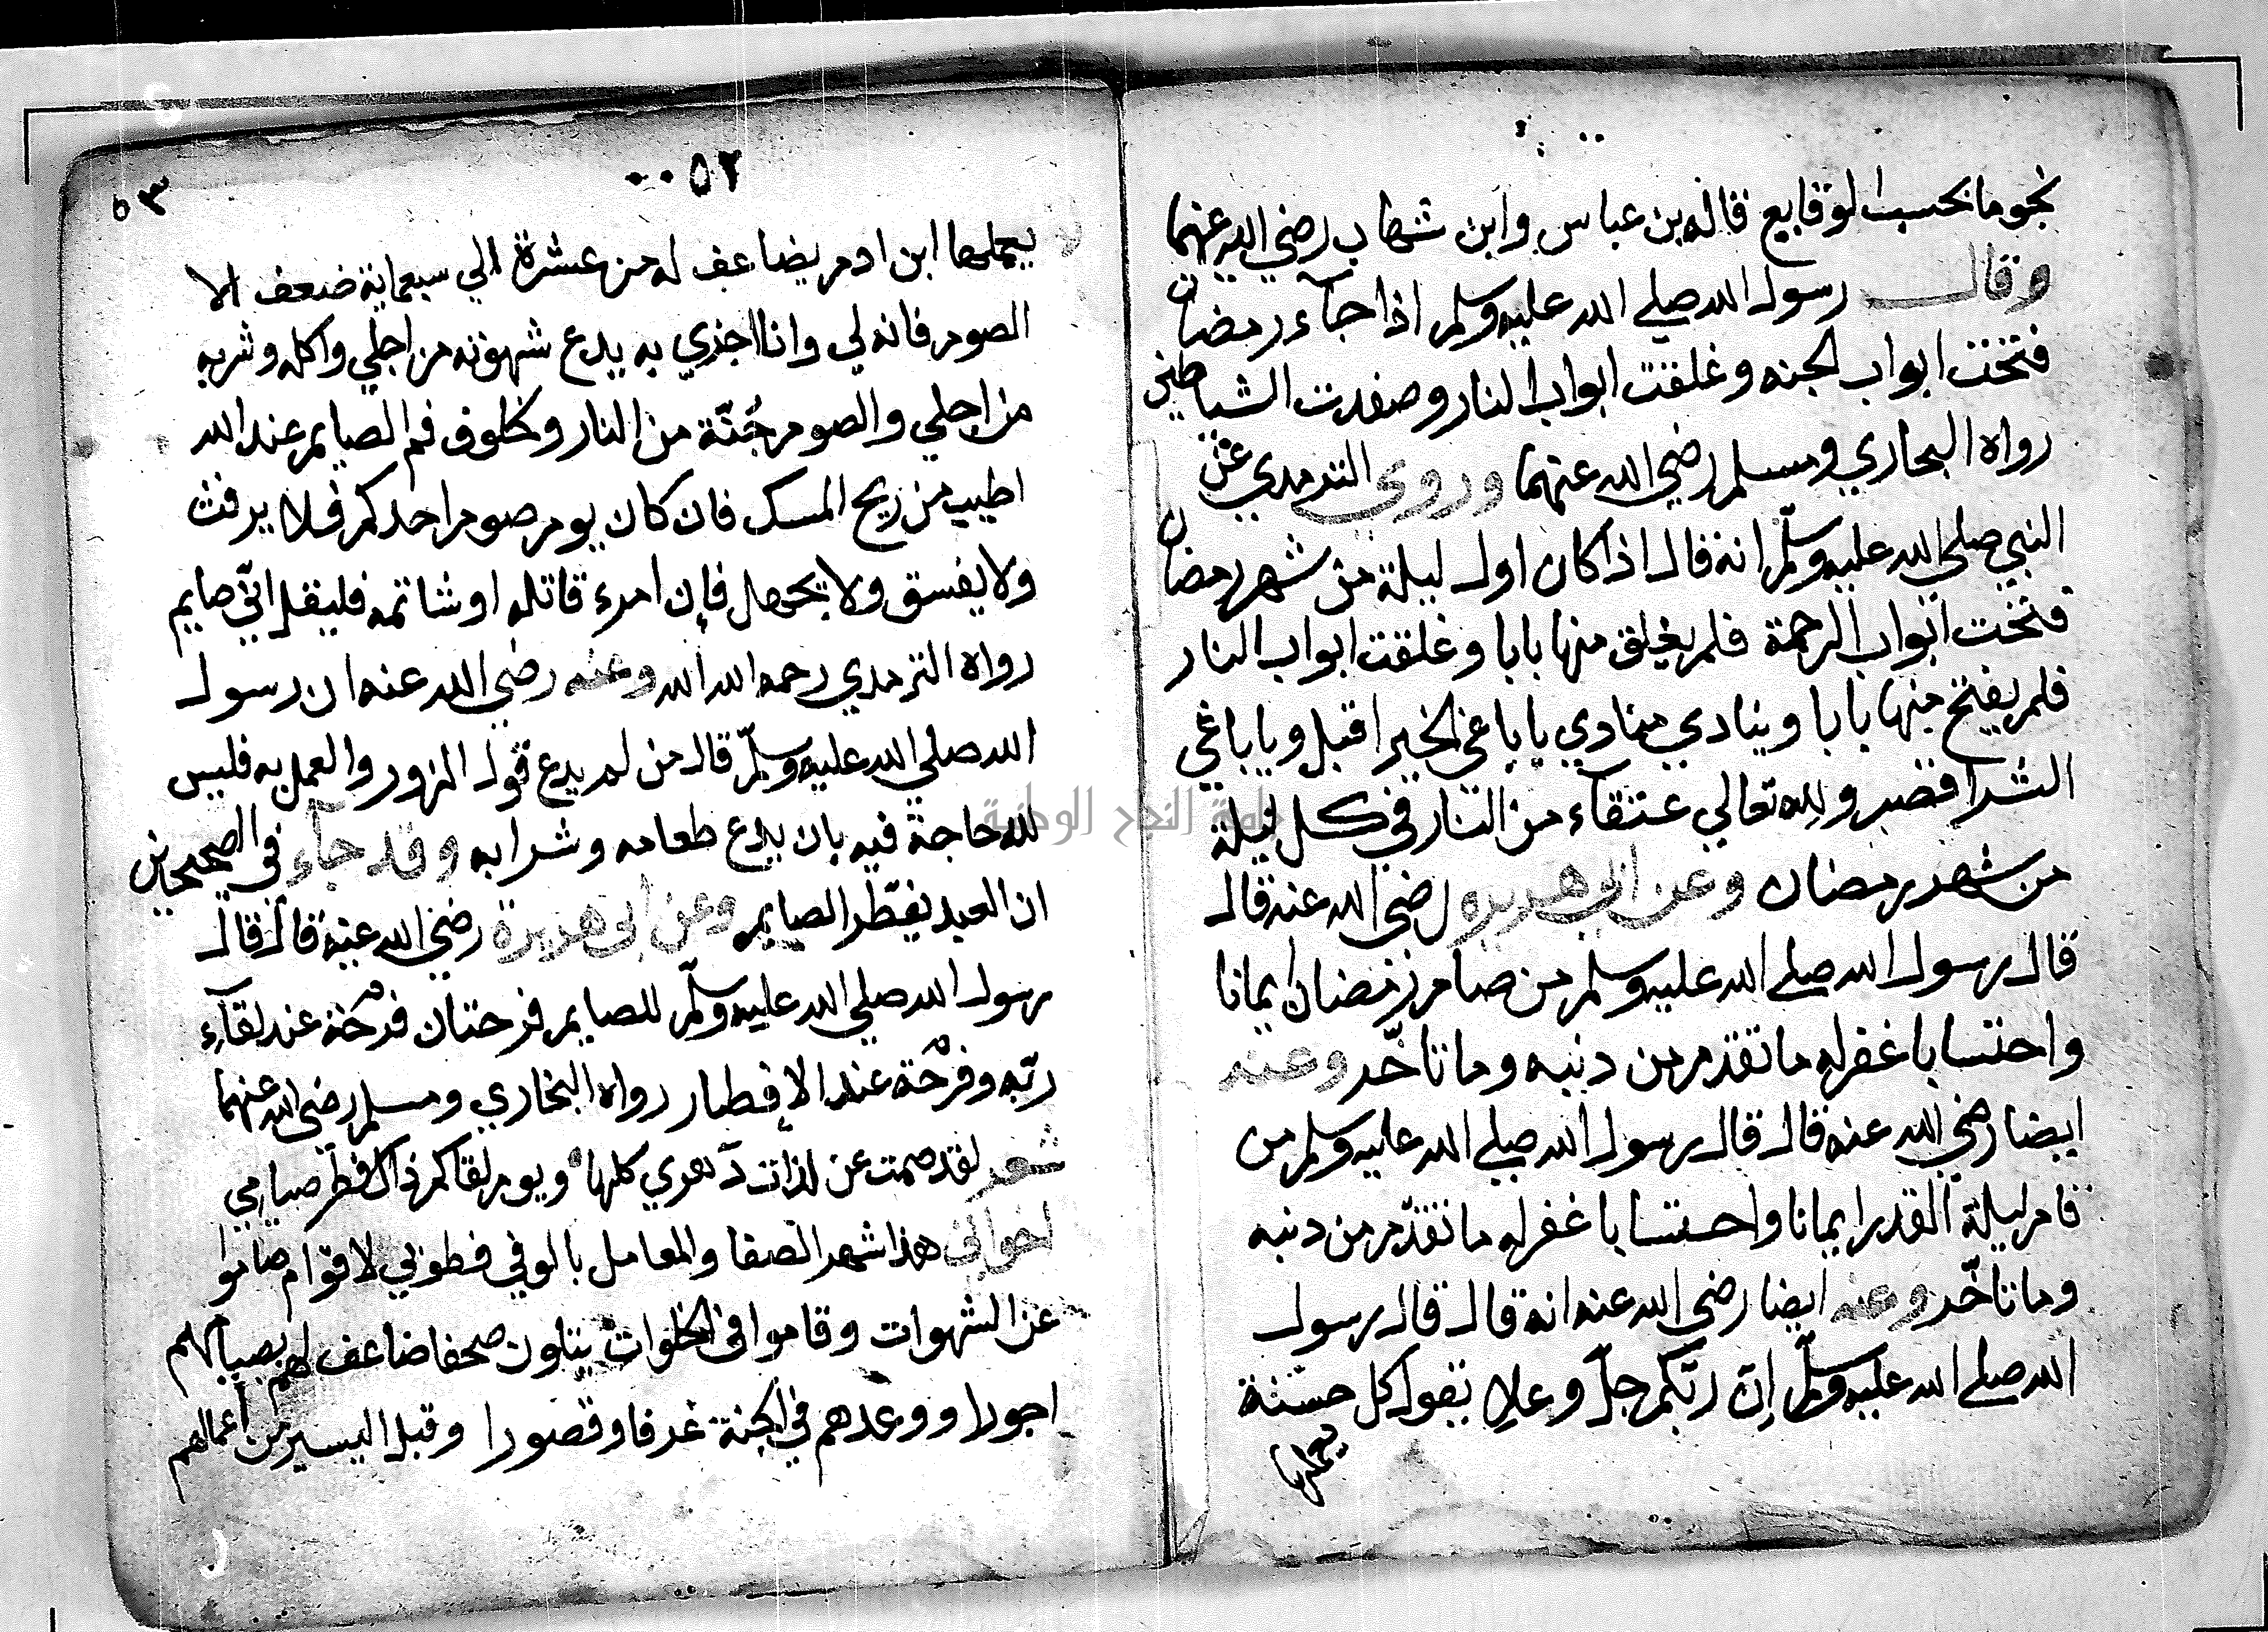 نجوما بحسب الوقايع قاله بن عباس وابن شهاب رضي الله عنهما
وقال رسول الله صلي الله عليه وسلم اذا جآء رمضان
فتحت ابواب الجنه وغلقت ابواب النار وصفدت الشياطين
رواه البخاري ومسلم رضي الله عنهما وروي الترمدي عن
النبي صلي الله عليه وسلم انه قال اذا كان اول ليلة من شهر رمضان
فتحت ابواب الرحمة فلم يغلق منها بابا وغلقت ابواب النار
فلم يفتح منها بابا وينادي منادي يا باغي الخير اقبل ويا باغي
الشر اقصر ولله تعالي عتقآء من النار في كل ليلة
من شهر رمضان وعن ابي هريره رضي الله عنه قال
قال رسول الله صلي الله عليه وسلم من صام رمضان ايمانا
واحتسابا غفر له ما تقدم من دنبه وما تاخّر وعنه
ايضا رضي الله عنه قال قال رسول الله صلي الله عليه وسلم من
قام ليلة القدر ايمانا واحتسابا غفر له ما تقدّم من دنبه
وما تاخّر وعنه ايضا رضي الله عنه انه قال قال رسول
الله صلي الله عليه وسلم إن ربّكم جلّ وعلا يقول كل حسنة
يعملها
٥٢
٥٣
يعملها ابن ادم يضاعف له من عشرة الي سبعماية ضعف الا
الصوم فانه لي وانا اجزي به يدع شهوته من اجلي واكله وشربه
من اجلي والصوم جُنّة من النار وخلوف فم الصايم عند الله
اطيب من ريح المسك فان كان يوم صوم احدكم فلا يرفث
ولا يفسق ولا يجهل فإن امرء قاتله او شاتمه فليقل انّي صايم
رواه الترمدي رحمه الله وعنه رضي الله عنه ان رسول
الله صلي الله عليه وسلّم قال من لم يدع قول الزور والعمل به فليس
لله حاجة فيه بان يدع طعامه وشرابه وقد جآء في الصحيحين
ان العبد يفطّر الصايم وعن ابي هريرة رضي الله عنه قال قال
رسول الله صلي الله عليه وسلّم للصايم فرحتان فرحة عند لقآء
ربّه وفرحة عند الافطار رواه البخاري ومسلم رضي الله عنهما
شعر لقد صمت عن لذات دهري كلها ويوم لقاكم ذاك فطر صيامي
اخواني هذا شهر الصفا والمعامل بالوفي فطوبي لاقوام صاموا
عن الشهوات وقاموا في الخلوات يتلون صحفا ضاعف لهم بصيامهم
اجورا ووعدهم في الجنة غرفا وقصورا وقبل اليسير من اعمالهم
جامعة النجاح الوطنية